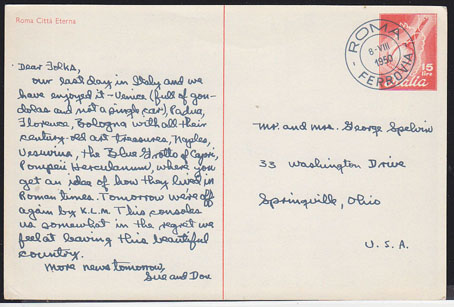 Roma Città Eterna
Dear Folks,
our last day in Italy and we
have enjoyed it - Venice (full of gon-
dolas and not a single car) Padua,
Florence, Bologna with all their
century-old art treasures, Naples,
Vesuvius, the Blue Grotto of Capri,
Pompeii Herculanum, where you
get an idea of how they lived in
Roman times. Tomorrow we're off
again by K.L.M. This consoles
us somewhat in the regret we
feel at leaving this beautiful
country.
More news tomorrow,
Sue and Don
ROMA
8-VIII
1950
FERROVIA
15
lire
Italia
Mr. and Mrs. George Spelvin
33 Washington Drive
Springville, Ohio
U.S.A.